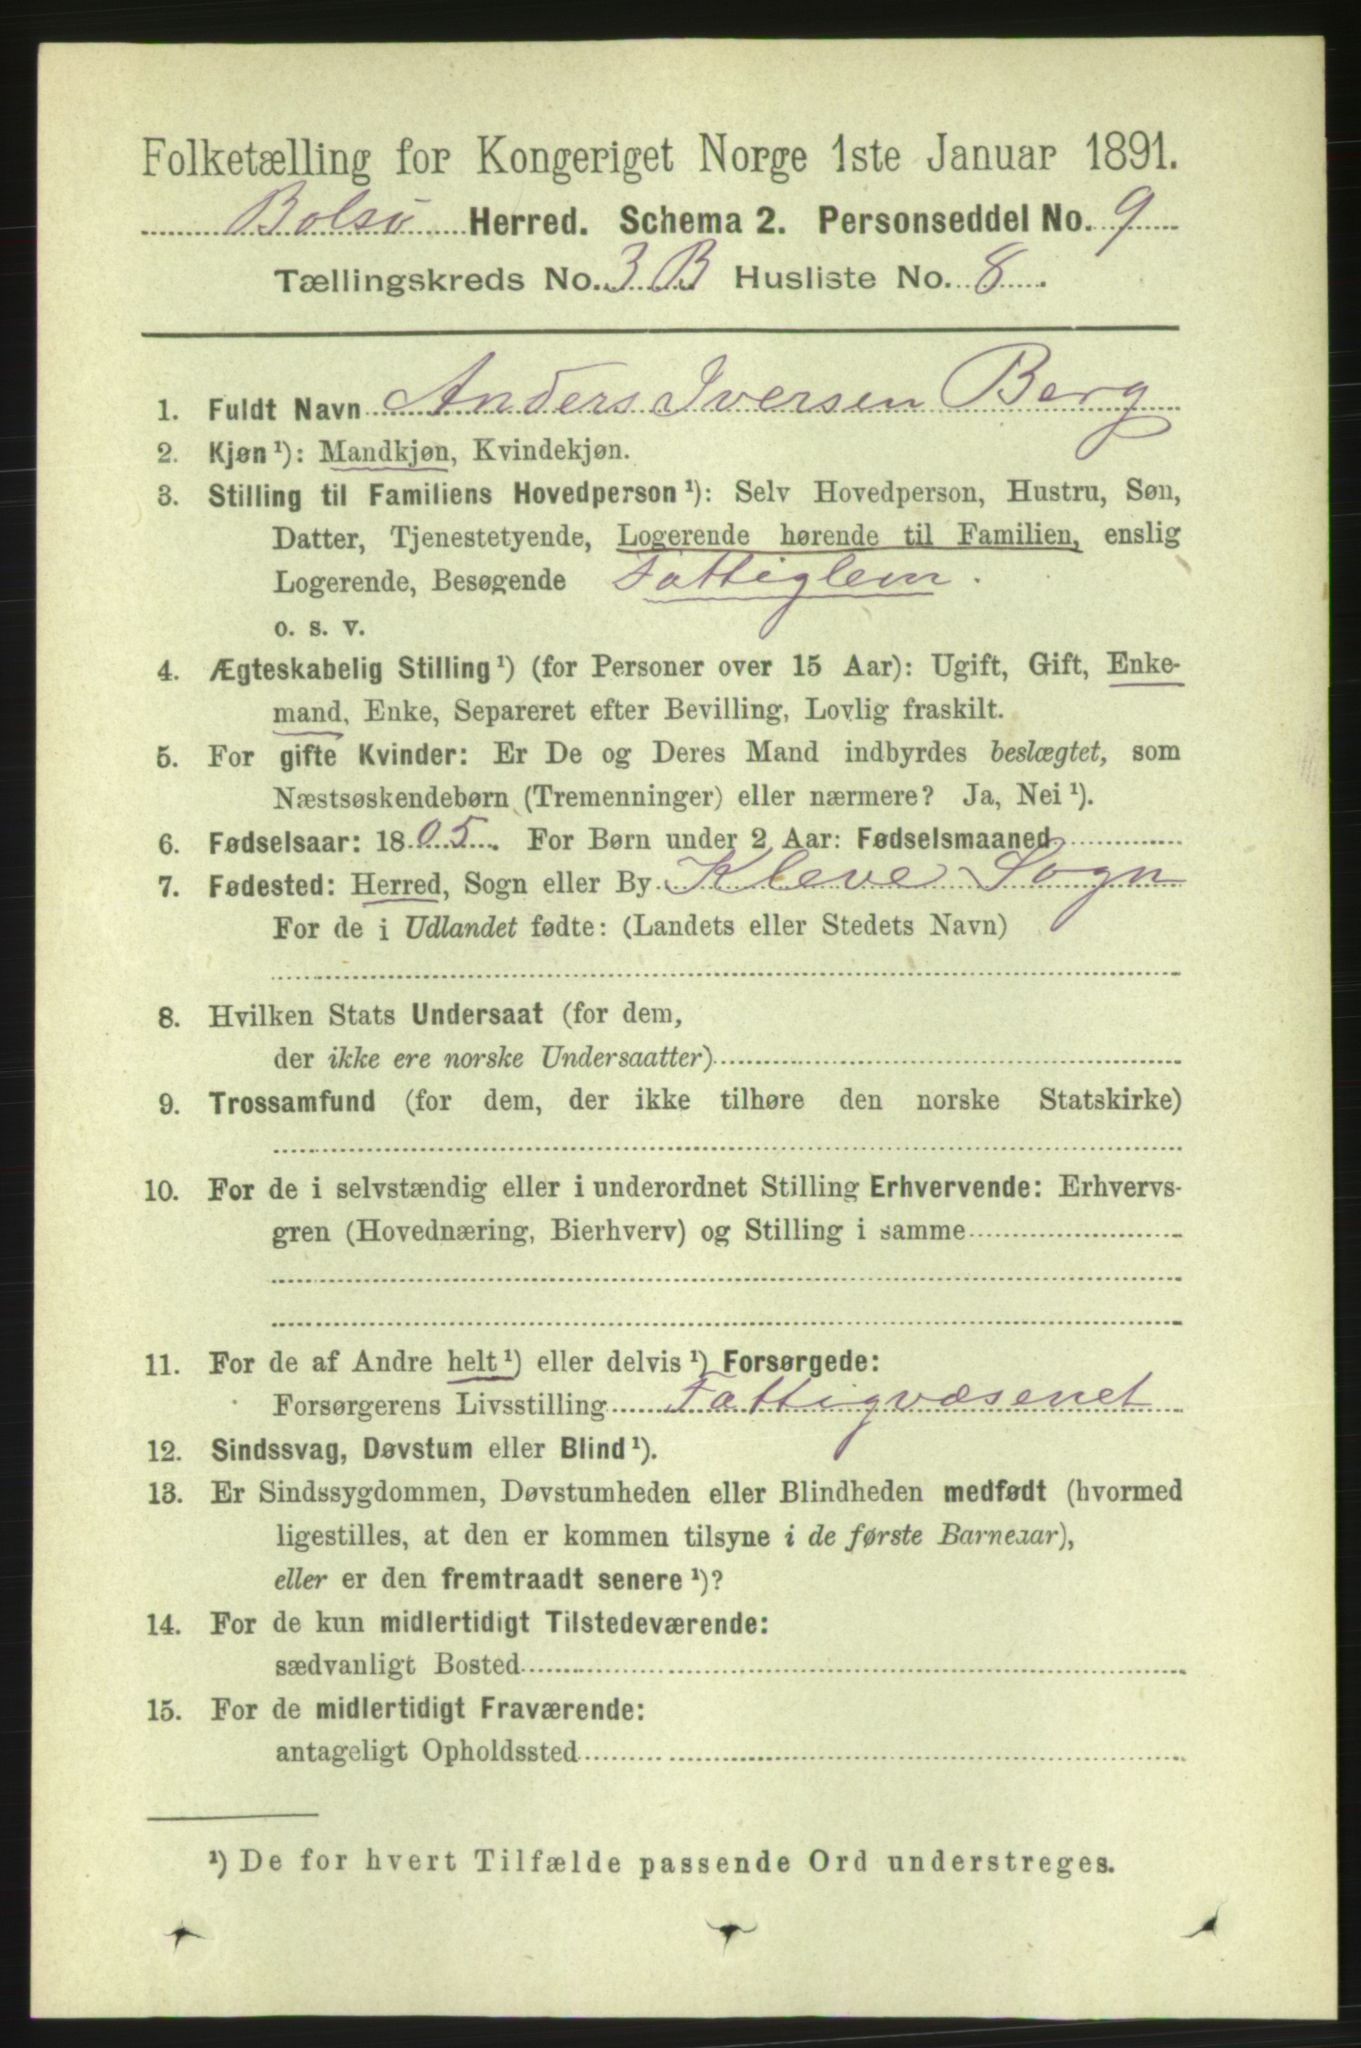 Folketælling for Kongeriget Norge 1ste Januar 1891.
Bolsø Herred. Schema 2. Personseddel No. 9
Tællingskreds No. 3 B Husliste No. 8
1. Fuldt Navn Anders Iversen Berg
2. Kjøn¹): Mandkjøn, Kvindekjøn.
3. Stilling til Familiens Hovedperson¹): Selv Hovedperson, Hustru, Søn,
Datter, Tjenestetyende, Logerende hørende til Familien, enslig
Logerende, Besøgende Fattiglem.
o. s. v.
4. Ægteskabelig Stilling¹) (for Personer over 15 Aar): Ugift, Gift, Enke-
mand, Enke, Separeret efter Bevilling, Lovlig fraskilt.
5. For gifte Kvinder: Er De og Deres Mand indbyrdes beslægtet, som
Næstsøskendebørn (Tremenninger) eller nærmere? Ja, Nei¹).
6. Fødselsaar: 1805. For Børn under 2 Aar: Fødselsmaaned
7. Fødested: Herred, Sogn eller By Kleve Sogn
For de i Udlandet fødte: (Landets eller Stedets Navn)
8. Hvilken Stats Undersaat (for dem,
der ikke ere norske Undersaatter)
9. Trossamfund (for dem, der ikke tilhøre den norske Statskirke)
10. For de i selvstændig eller i underordnet Stilling Erhvervende: Erhvervs-
gren (Hovednæring, Bierhverv) og Stilling i samme
11. For de af Andre helt¹) eller delvis¹) Forsørgede:
Forsørgerens Livsstilling Fattigvæsenet
12. Sindssvag, Døvstum eller Blind¹).
13. Er Sindssygdommen, Døvstumheden eller Blindheden medfødt (hvormed
ligestilles, at den er kommen tilsyne i de første Barneaar),
eller er den fremtraadt senere¹)?
14. For de kun midlertidigt Tilstedeværende:
sædvanligt Bosted
15. For de midlertidigt Fraværende:
antageligt Opholdssted
¹) De for hvert Tilfælde passende Ord understreges.